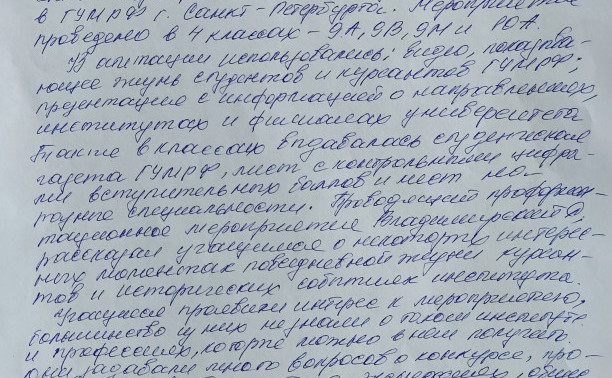 в ГУМРФ г. Санкт-Петербурга. Мероприятие
проведено в 4 классах - 9А, 9В, 9М и 10А.
В агитации использовались: видео, показыва-
ющее жизнь студентов и курсантов ГУМРФ,
презентация с информацией о направлениях,
институтах и филиалах университета
Также в классах вздавалась студенческая
газета ГУМРФ, лист с контрольными цифра-
ми вступительных баллов и мест на
данные специальности. Проводящий профориен-
тационное мероприятие Владимирский Д.
рассказал учащимся о некоторых интерес-
ных моментах повседневной жизни курсан-
тов и исторических событиях института.
Учащиеся проявили интерес к мероприятию,
большинство из них не знали о таком институте
и профессиях, которые можно в нем получить.
они задавали много вопросов о конкурсе, про-
общие